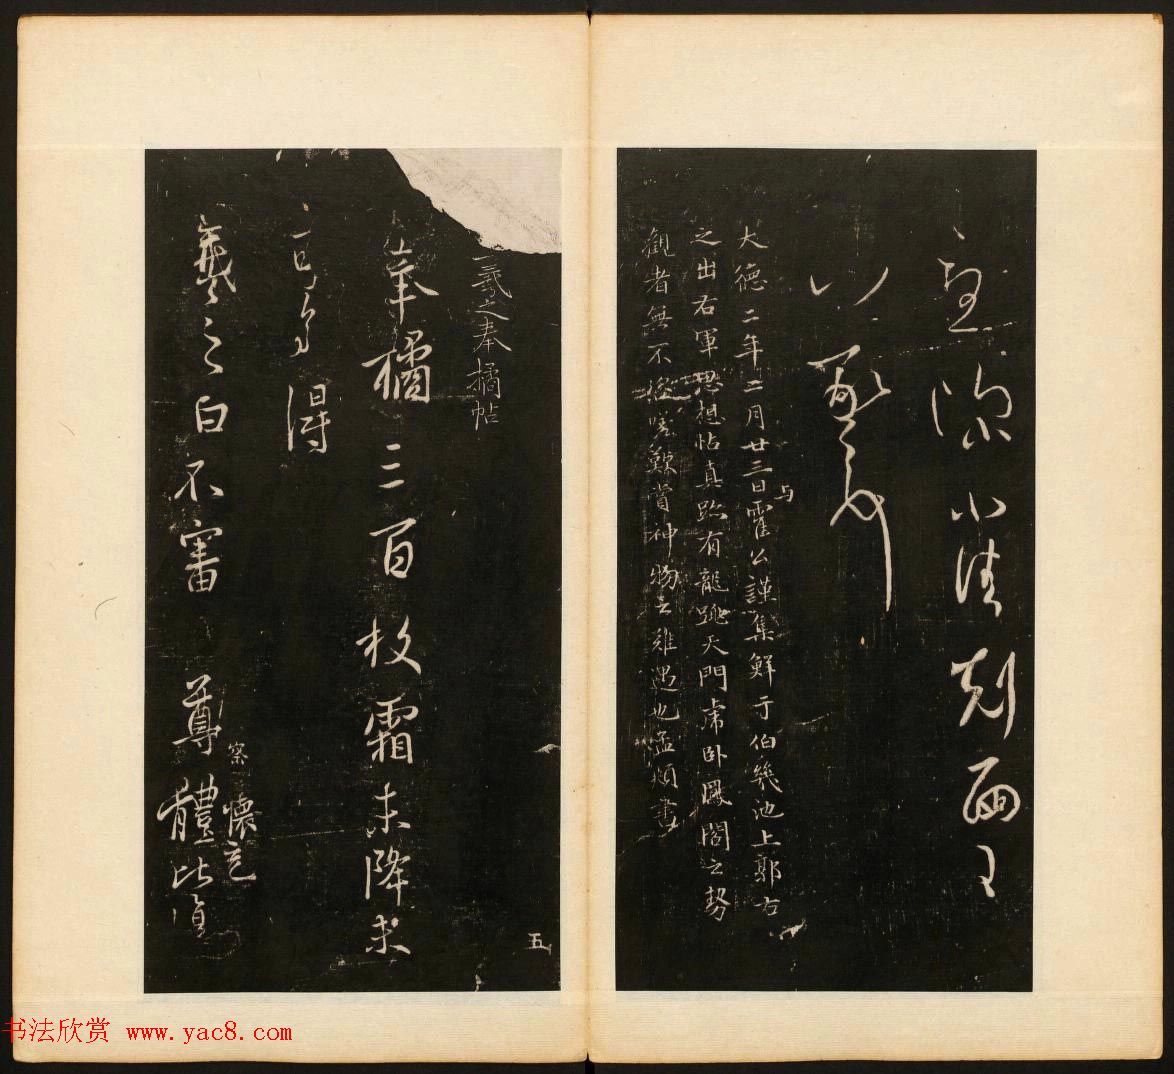 深小佳
以慰
大德二年二月廿三日与霍公謹集鮮于伯幾池上郭右
之出右軍思想帖真跡有龍跳天門虎卧鳳閣之勢
觀者無不咨嗟歎賞神物之難遇也孟頫書
五
羲之奉橘帖
奉橘三百枚霜未降未
可多得
察 懷充
羲之白不審 尊體比復
书法欣赏 www.yac8.com